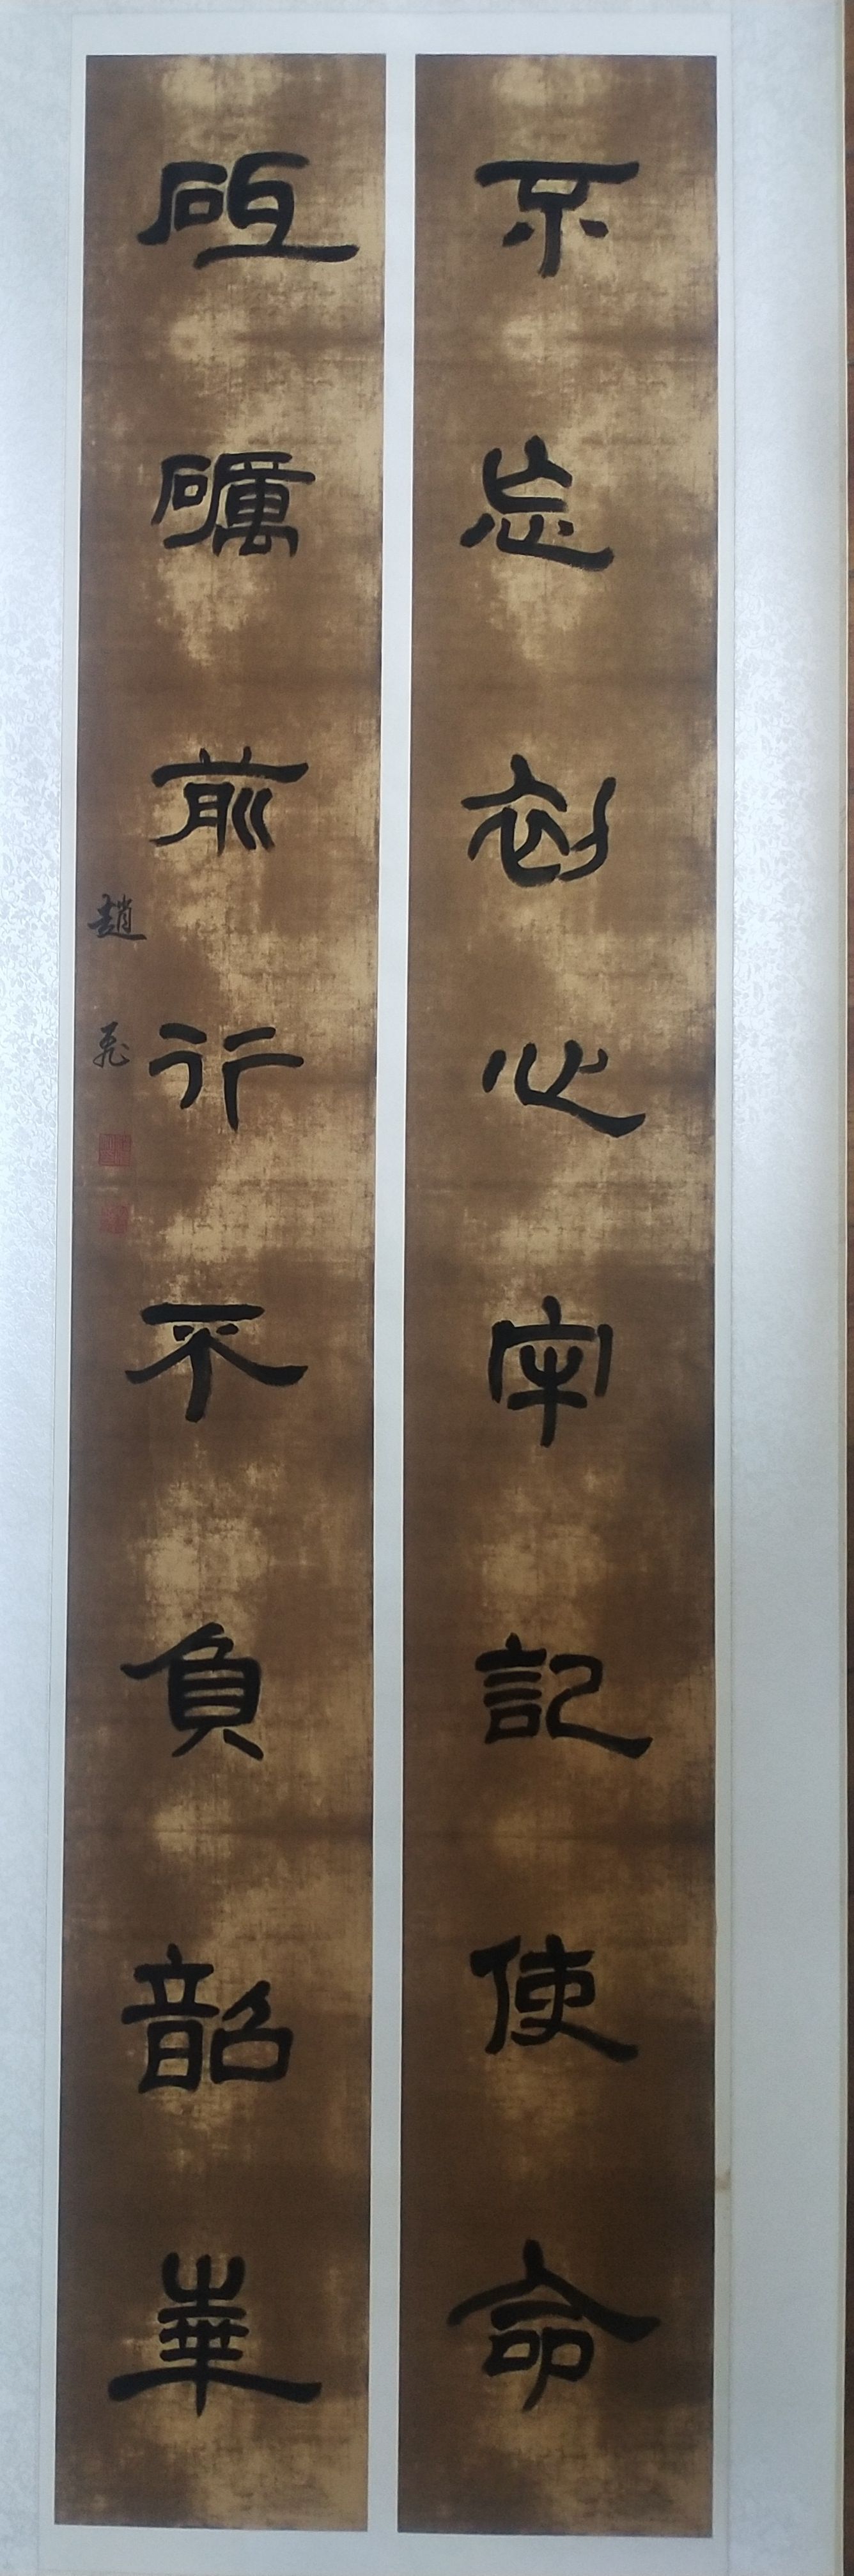 不忘初心牢記使命
砥礪前行不負韶華
趙飛